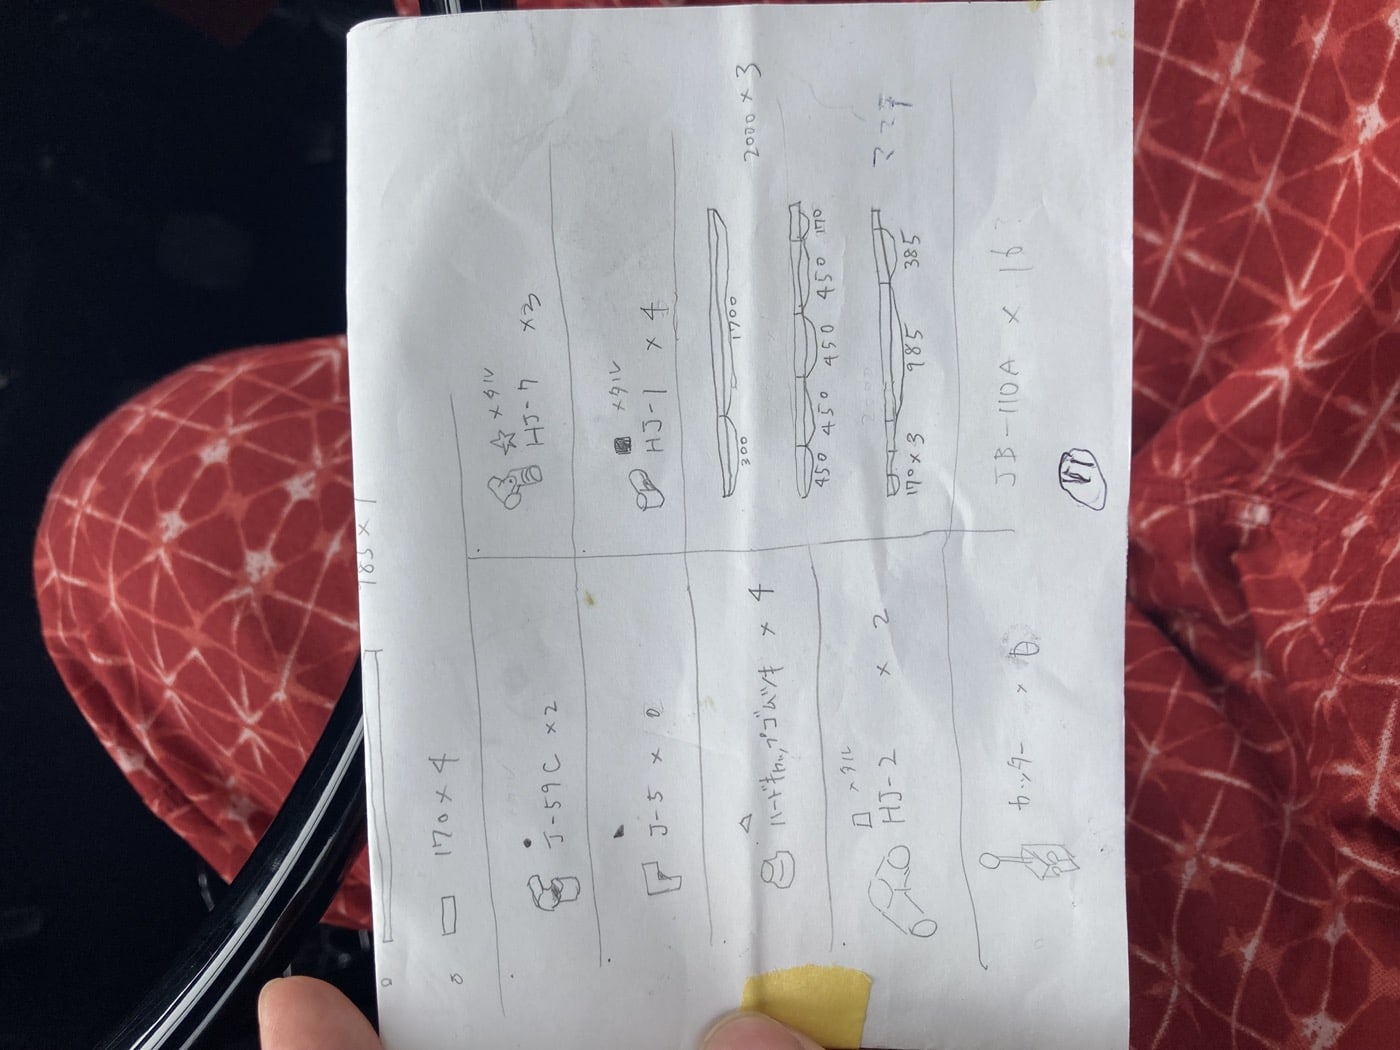 985×1
170×4
J-59C ×2
メタル
HJ-7 ×3
J-5 × 0
メタル
HJ-1 × 4
ハードキャップゴムツキ × 4
2000×3
300 1700
450 450 450 450 170
170×3 985 385
メタル
HJ-2 × 2
カッター × 0
JB-110A × 16